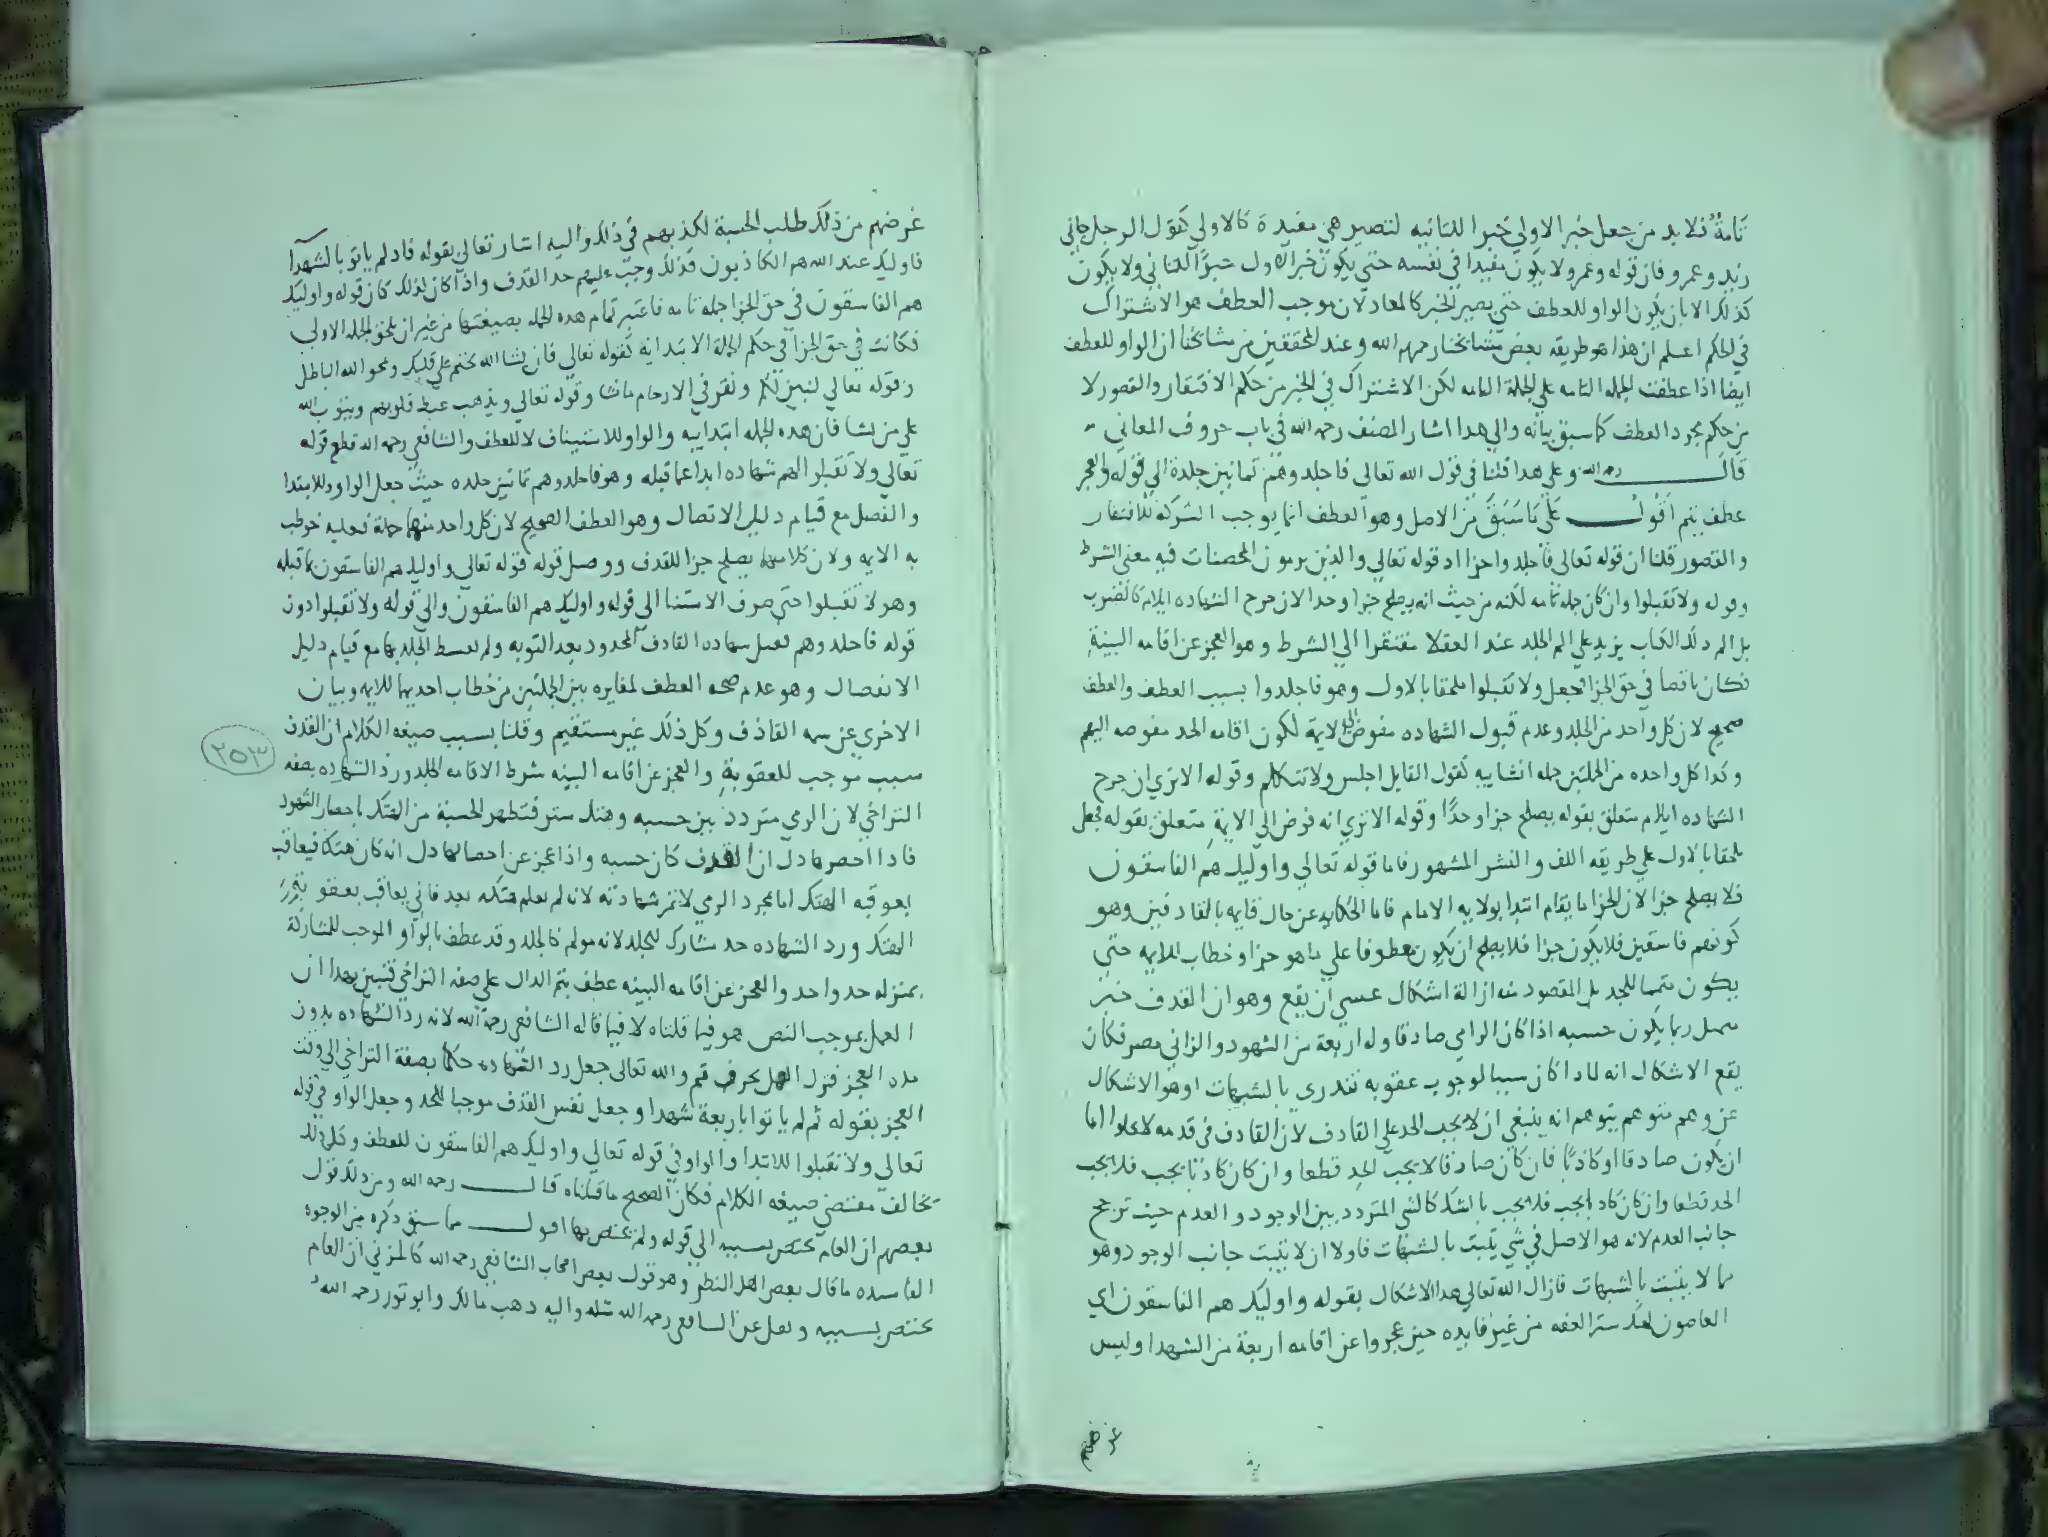 تامة فلا بد من جعل خبر الاولي خبرا للثانيه لتصير هي مفيدة كالاولي كقول الرجل جاني
زيد وعمرو فان قوله وعمرو لا يكون مفيدا في نفسه حتي يكون خبر الاول خبرا للثاني ولا يكون
كذلك الا بان يكون الواو للعطف حتي يصير الخبر كالمعاد لان موجب العطف هو الاشتراك
في الحكم اعلم ان هذا هو طريقه بعض مشايخنا رحمهم الله وعند المحققين من مشايخنا ان الواو للعطف
ايضا اذا عطفت الجمله التامه علي الجملة التامه لكن الاشتراك في الخبر من حكم الافتقار والقصور لا
من حكم مجرد العطف كما سبق بيانه والي هذا اشار المصنف رحمه الله في باب حروف المعاني
قال رحمه الله وعلي هذا قلنا في قول الله تعالي فاجلدوهم ثمانين جلدة الي قوله والعجز
عطف بثم اقول علي ما سبق من الاصل وهو ان العطف انما يوجب الشركة للافتقار
والقصور قلنا ان قوله تعالي فاجلدوا جزا اد قوله تعالي والذين يرمون المحصنات فيه معني الشرط
وقوله ولا تقبلوا وان كان جمله تامه لكنه من حيث انه يصلح جزا وحدا لان جرح الشهاده ايلام كالضرب
بل الم ذلك الكتاب يزيد علي الم الجلد عند العقلا مفتقرا الي الشرط وهو العجز عن اقامه البينة
فكان ناقصا في حق الجزا فجعل ولا تقبلوا ملحقا بالاول وهو فاجلدوا بسبب العطف والعطف
صحيح لان كل واحد من الجلد وعدم قبول الشهاده مفوض الي الايمة لكون اقامه الحد مفوضه اليهم
وكدا كل واحده من الجملتين جمله انشاييه كقول القايل اجلس ولا تتكلم وقوله الا تري ان جرح
الشهاده ايلام متعلق بقوله يصلح جزا وحدا وقوله الا تري انه فوض الي الايمة متعلق بقوله فجعل
ملحقا بالاول علي طريقه اللف والنشر المشهور فاما قوله تعالي واوليك هم الفاسقون
فلا يصلح جزا لان الجزا ما يقام ابتدا بولايه الامام فاما الحكايه عن حال قايمه بالقاذفين وهو
كونهم فاسقين فلا يكون جزا فلا يصلح ان يكون معطوفا علي ما هو جزا وخطاب للايمه حتي
يكون متمما للحد بل المقصود منه ازالة اشكال عسي ان يقع وهو ان القذف خبر
ربما يكون حسبه اذا كان الرامي صادقا وله اربعة من الشهود والزاني مصر فكان
يقع الاشكال انه لماذا كان سببا لوجوب عقوبه تندري بالشبهات او هو الاشكال
عن وهم متوهم يتوهم انه ينبغي ان لا يجب الحد علي القاذف لان القاذف في قدمه لا يخلوا اما
ان يكون صادقا او كاذبا فان كان صادقا لا يجب الحد قطعا وان كان كاذبا يجب فلا يجب
الحد قطعا وان كان كاذبا يجب فلا يجب بالشك كالشي المتردد بين الوجود والعدم حيث ترجح
جانب العدم لانه هو الاصل في شي يثبت بالشبهات فاولا ان لا يثبت جانب الوجود وهو
مما لا يثبت بالشبهات فازال الله تعالي هذا الاشكال بقوله واوليك هم الفاسقون اي
العاصون لهتك ستر العفه من غير فايده حين عجزوا عن اقامه اربعة من الشهدا وليس
غرضهم
غرضهم من ذلك طلب الحسبة لكذبهم في ذلك واليه اشار تعالي بقوله فاد لم ياتوا بالشهدآ
فاوليك عند الله هم الكاذبون فكذلك وجب عليهم حد القذف واذا كان كذلك كان قوله واوليك
هم الفاسقون في حق الجزا جمله تامه فاعتبر تمام هذه الجمله بصيغتها من غير ان يلحق بالجمله الاولي
فكانت في حق الجزا في حكم الجملة الابتدايه كقوله تعالي فان يشا الله يختم علي قلبك ويمحو الله الباطل
وقوله تعالي لنبين لكم ونقر في الارحام ما نشا وقوله تعالي ويذهب غيظ قلوبهم ويتوب الله
علي من يشا فان هذه الجمله ابتداييه والواو للاستيناف لا للعطف والشافعي رحمه الله قطع قوله
تعالي ولا تقبلوا لهم شهاده ابدا عما قبله وهو فاجلدوهم ثمانين جلده حيث جعل الواو للابتدا
والفصل مع قيام دليل الاتصال وهو العطف الصحيح لان كل واحد منهما جملة فعليه خوطب
به الايمه ولان كلا منهما يصلح جزا للقذف ووصل قوله قوله تعالي واوليك هم الفاسقون بما قبله
وهو لا تقبلوا حتي صرف الاستثنا الي قوله واوليك هم الفاسقون والي قوله ولا تقبلوا دون
قوله فاجلدوهم فقبل شهاده القاذف المحدود بعد التوبه ولم يسقط الجلد بها مع قيام دليل
الانفصال وهو عدم صحه العطف لمغايره بين الجملتين من خطاب احديهما للايمه وبيان
الاخري عن سمه القاذف وكل ذلك غير مستقيم وقلنا بسبب صيغه الكلام ان القذف
سبب موجب للعقوبة والعجز عن اقامه البينه شرط الاقامه الجلد ورد الشهاده بصفه
٢٥٣
التراخي لان الرمي متردد بين حسبه وهتك ستر فتظهر الحسبة من الهتك باحضار الشهود
فاذا احضرها دل ان القذف كان حسبه واذا عجز عن احضارها دل انه كان هتكا فيعاقب
بعقوبه الهتك اما بمجرد الرمي لا ترد شهادته لانه لم يعلم هتكه بعد فاني يعاقب بعقوبة
الهتك ورد الشهاده حد مشارك للجلد لانه مولم كالجلد وقد عطف بالواو الموجب للمشاركة
بمنزله حد واحد والعجز عن اقامه البينه عطف بثم الدال علي صفه التراخي فتبين بهذا ان
العمل بموجب النص هو فيما قلناه لا فيما قاله الشافعي رحمه الله لانه رد الشهاده بدون
مده العجز فترك العمل بحرف ثم والله تعالي جعل رد الشهاده حكما بصفة التراخي الي وقت
العجز بقوله ثم لم ياتوا باربعة شهدا وجعل نفس القذف موجبا للحد وجعل الواو في قوله
تعالي ولا تقبلوا للابتدا والواو في قوله تعالي واوليك هم الفاسقون للعطف وكل ذلك
تخالف مقتضي صيغه الكلام فكان الصحيح ما قلناه قال رحمه الله ومن ذلك قول
بعضهم ان العام يختص بسببه الي قوله ولم يختص بها اقول مما سبق ذكره من الوجوه
الفاسده ما قال بعض اهل النظر وهو قول بعض اصحاب الشافعي رحمه الله كالمزني ان العام
يختص بسببه ونقل عن الشافعي رحمه الله مثله واليه ذهب مالك وابو ثور رحمه الله